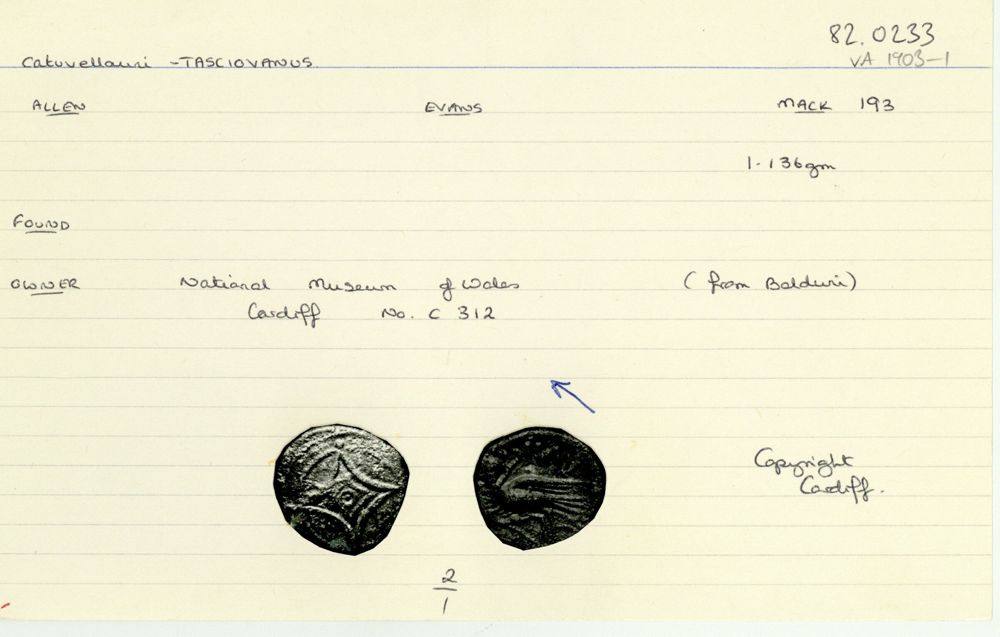 82.0233
Catuvellauni - TASCIOVANUS
VA 1903-1
ALLEN EVANS MACK 193
1.136gm
FOUND
OWNER National Museum of Wales (from Baldwin)
Cardiff No. C 312
Copyright
Cardiff.
2
1